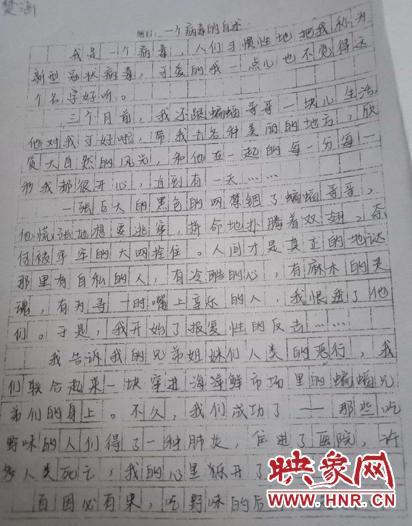 楚涵
题目：一个病毒的自述
我是一个病毒，人们习惯性地把我称为
新型冠状病毒，可爱的我一点儿也不觉得这
个名字好听。
三个月前，我还跟蝙蝠哥哥一块儿生活，
他对我可好啦，带我去各种美丽的地方，欣
赏大自然的风光，和他在一起的每一分每一
秒我都很开心，直到有一天……
一张巨大的黑色的网笼罩了蝙蝠哥哥，
他慌张地想要逃窜，拼命地扑腾着双翅，奈
何被牢牢的大网拴住。人间才是真正的地狱
那里有自私的人，有冷酷的心，有麻木的灵
魂，有为寻一时嘴上享乐的人，我恨透了他
们。于是，我开始了报复性的反击……
我告诉我的兄弟姐妹们人类的恶行，我
们联合起来一块穿进海海鲜市场里的蝙蝠兄
弟们的身上。不久，我们成功了——那些吃
野味的人们得了一种肺炎，住进了医院，许
多人类死亡，我的心里乐开了
有因必有果，吃野味的后
映象网
WWW.HNR.CN